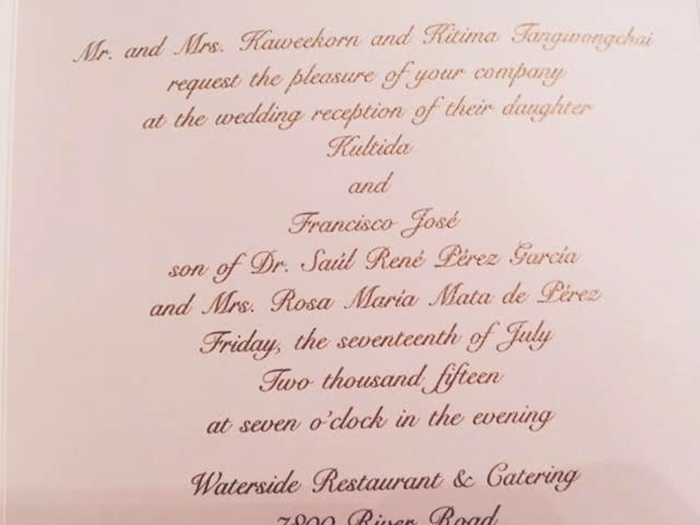 Mr. and Mrs. Kaweekorn and Kitima Tangwongchai
request the pleasure of your company
at the wedding reception of their daughter
Kultida
and
Francisco José
son of Dr. Saúl René Pérez García
and Mrs. Rosa María Mata de Pérez
Friday, the seventeenth of July
Two thousand fifteen
at seven o'clock in the evening
Waterside Restaurant & Catering
7800 River Road